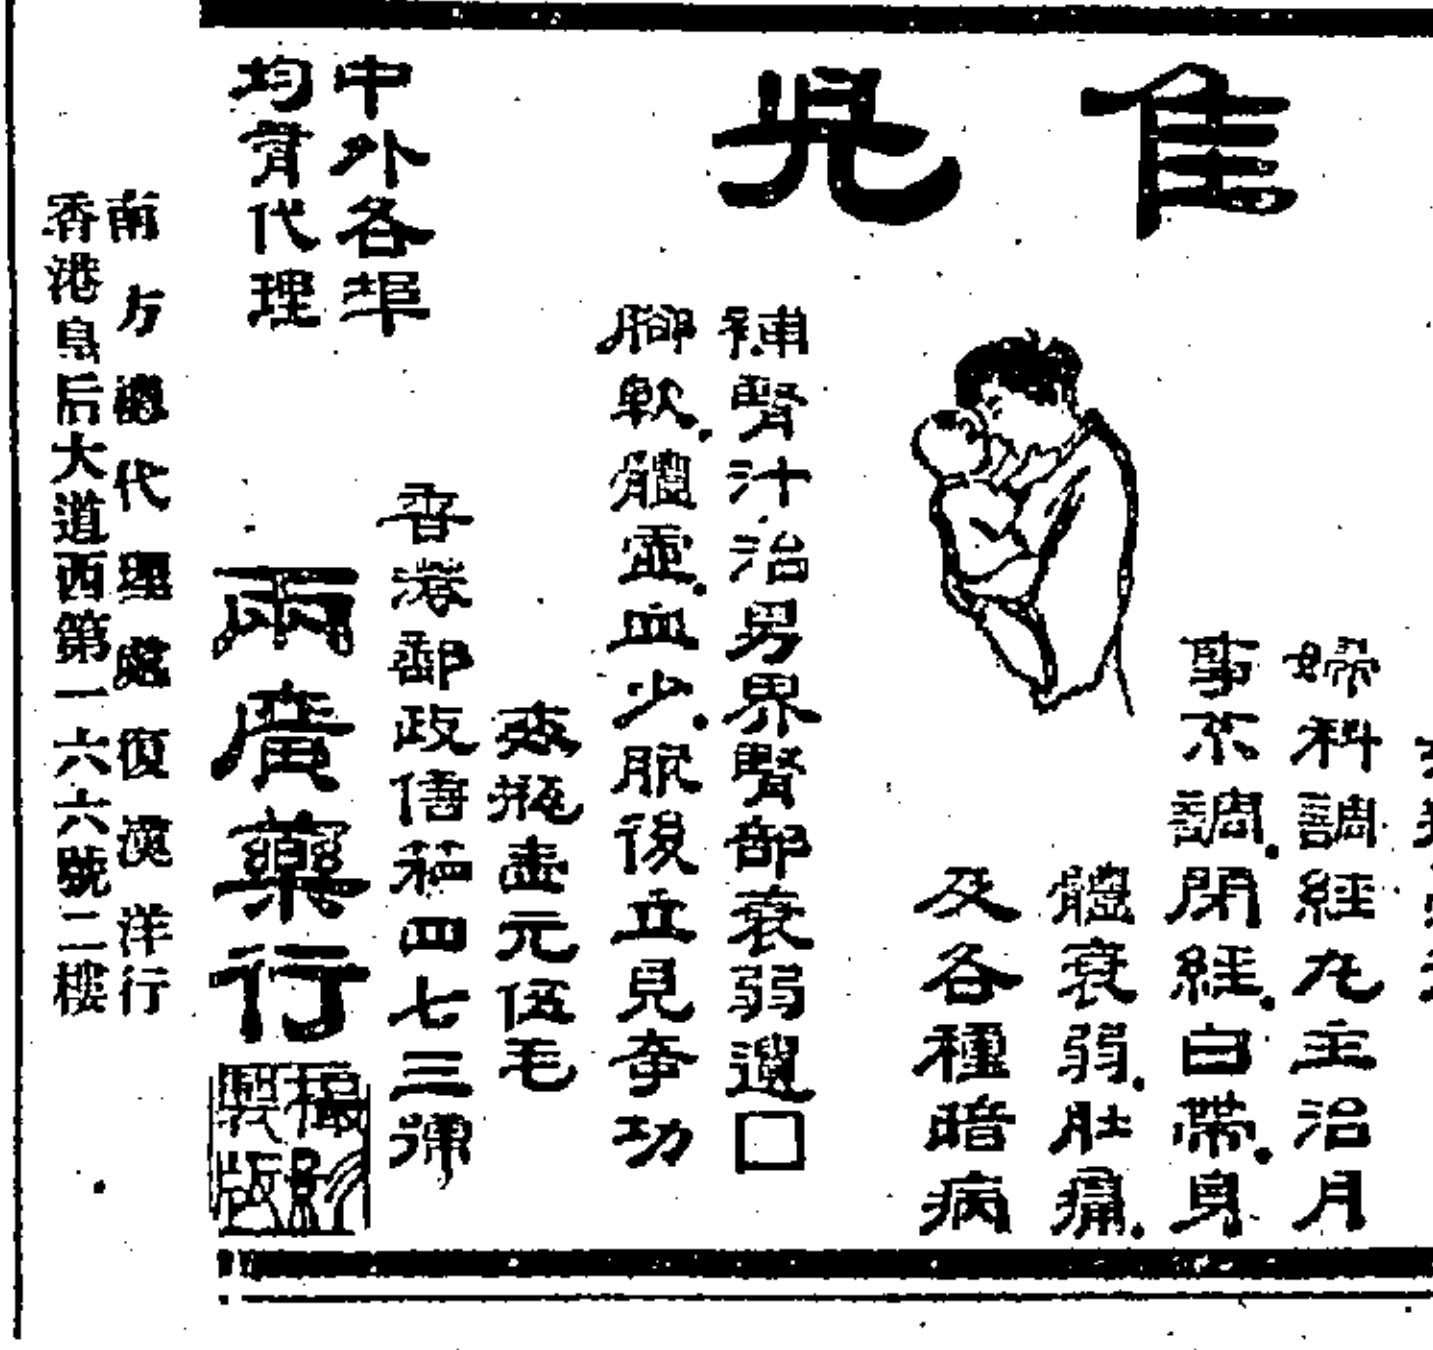 隹兒
婦科調經九主治月
事不調.閉經.白帶.身
體衰弱.肚痛.
及各種暗病
補腎汁治男界腎部衰弱遺□
腳軟.體虛.血少.服後立見奇功
壺元伍毛
香港郵政信箱四七三號
中外各埠
均有代理
兩廣藥行
製版
南方總代理處復漢洋行
香港皇后大道西第一六六號二樓